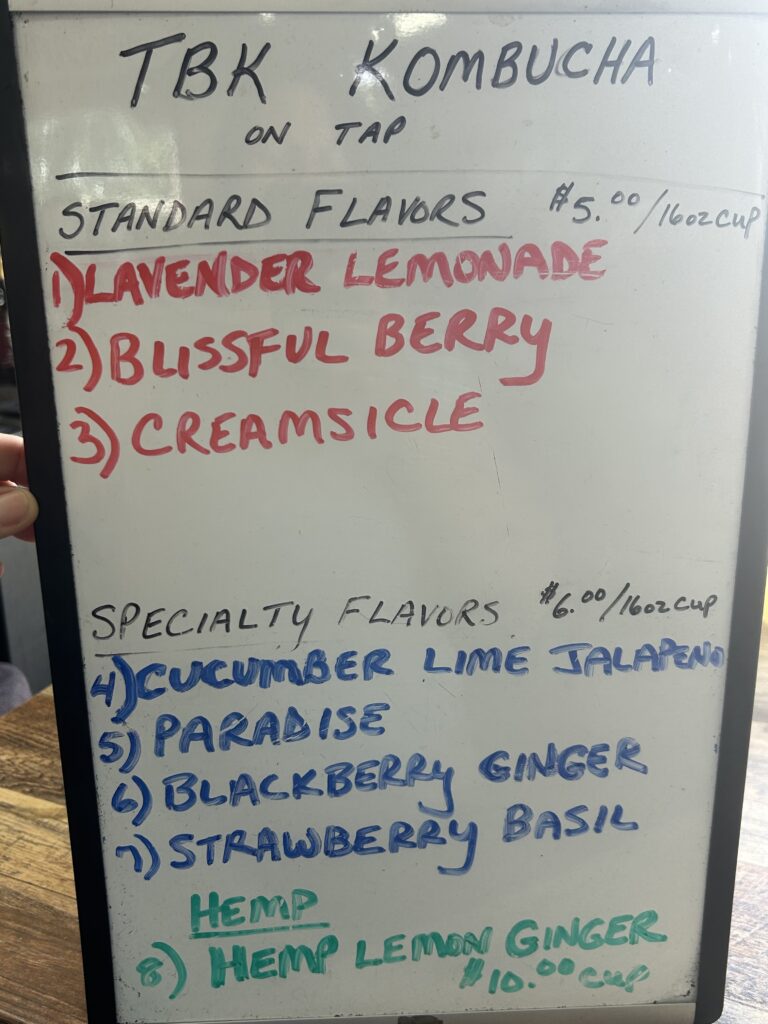 TBK KOMBUCHA
ON TAP
STANDARD FLAVORS $5.00/16oz CUP
1) LAVENDER LEMONADE
2) BLISSFUL BERRY
3) CREAMSICLE
SPECIALTY FLAVORS $6.00/16oz CUP
4) CUCUMBER LIME JALAPENO
5) PARADISE
6) BLACKBERRY GINGER
7) STRAWBERRY BASIL
HEMP
8) HEMP LEMON GINGER
$10.00 CUP